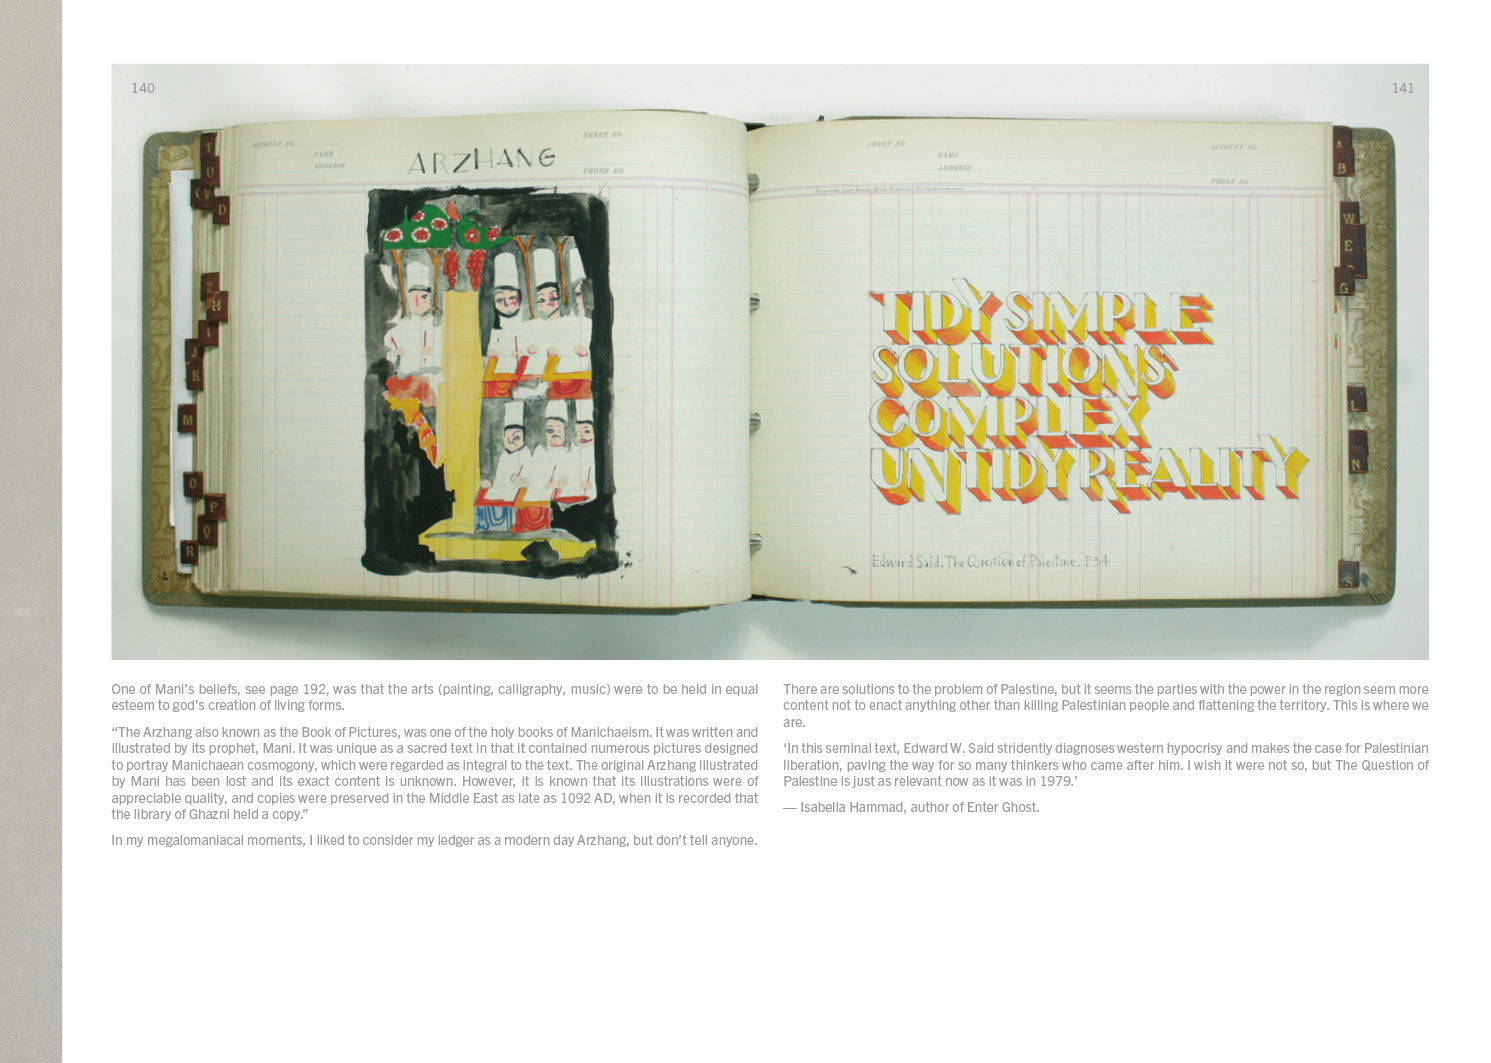 140
141
ACCOUNT NO.
NAME
ADDRESS
SHEET NO.
PHONE NO.
ARZHANG
SHEET NO.
NAME
ADDRESS
ACCOUNT NO.
PHONE NO.
TIDY SIMPLE
SOLUTIONS
COMPLEX
UNTIDY REALITY
Edward Said. The Question of Palestine. P34
T
U
V
D
Z
H
I
J
K
M
O
P
Q
R
A
B
W
E
G
L
N
S
One of Mani’s beliefs, see page 192, was that the arts (painting, calligraphy, music) were to be held in equal
esteem to god’s creation of living forms.
“The Arzhang also known as the Book of Pictures, was one of the holy books of Manichaeism. It was written and
illustrated by its prophet, Mani. It was unique as a sacred text in that it contained numerous pictures designed
to portray Manichaean cosmogony, which were regarded as integral to the text. The original Arzhang illustrated
by Mani has been lost and its exact content is unknown. However, it is known that its illustrations were of
appreciable quality, and copies were preserved in the Middle East as late as 1092 AD, when it is recorded that
the library of Ghazni held a copy.”
In my megalomaniacal moments, I liked to consider my ledger as a modern day Arzhang, but don’t tell anyone.
There are solutions to the problem of Palestine, but it seems the parties with the power in the region seem more
content not to enact anything other than killing Palestinian people and flattening the territory. This is where we
are.
‘In this seminal text, Edward W. Said stridently diagnoses western hypocrisy and makes the case for Palestinian
liberation, paving the way for so many thinkers who came after him. I wish it were not so, but The Question of
Palestine is just as relevant now as it was in 1979.’
— Isabella Hammad, author of Enter Ghost.